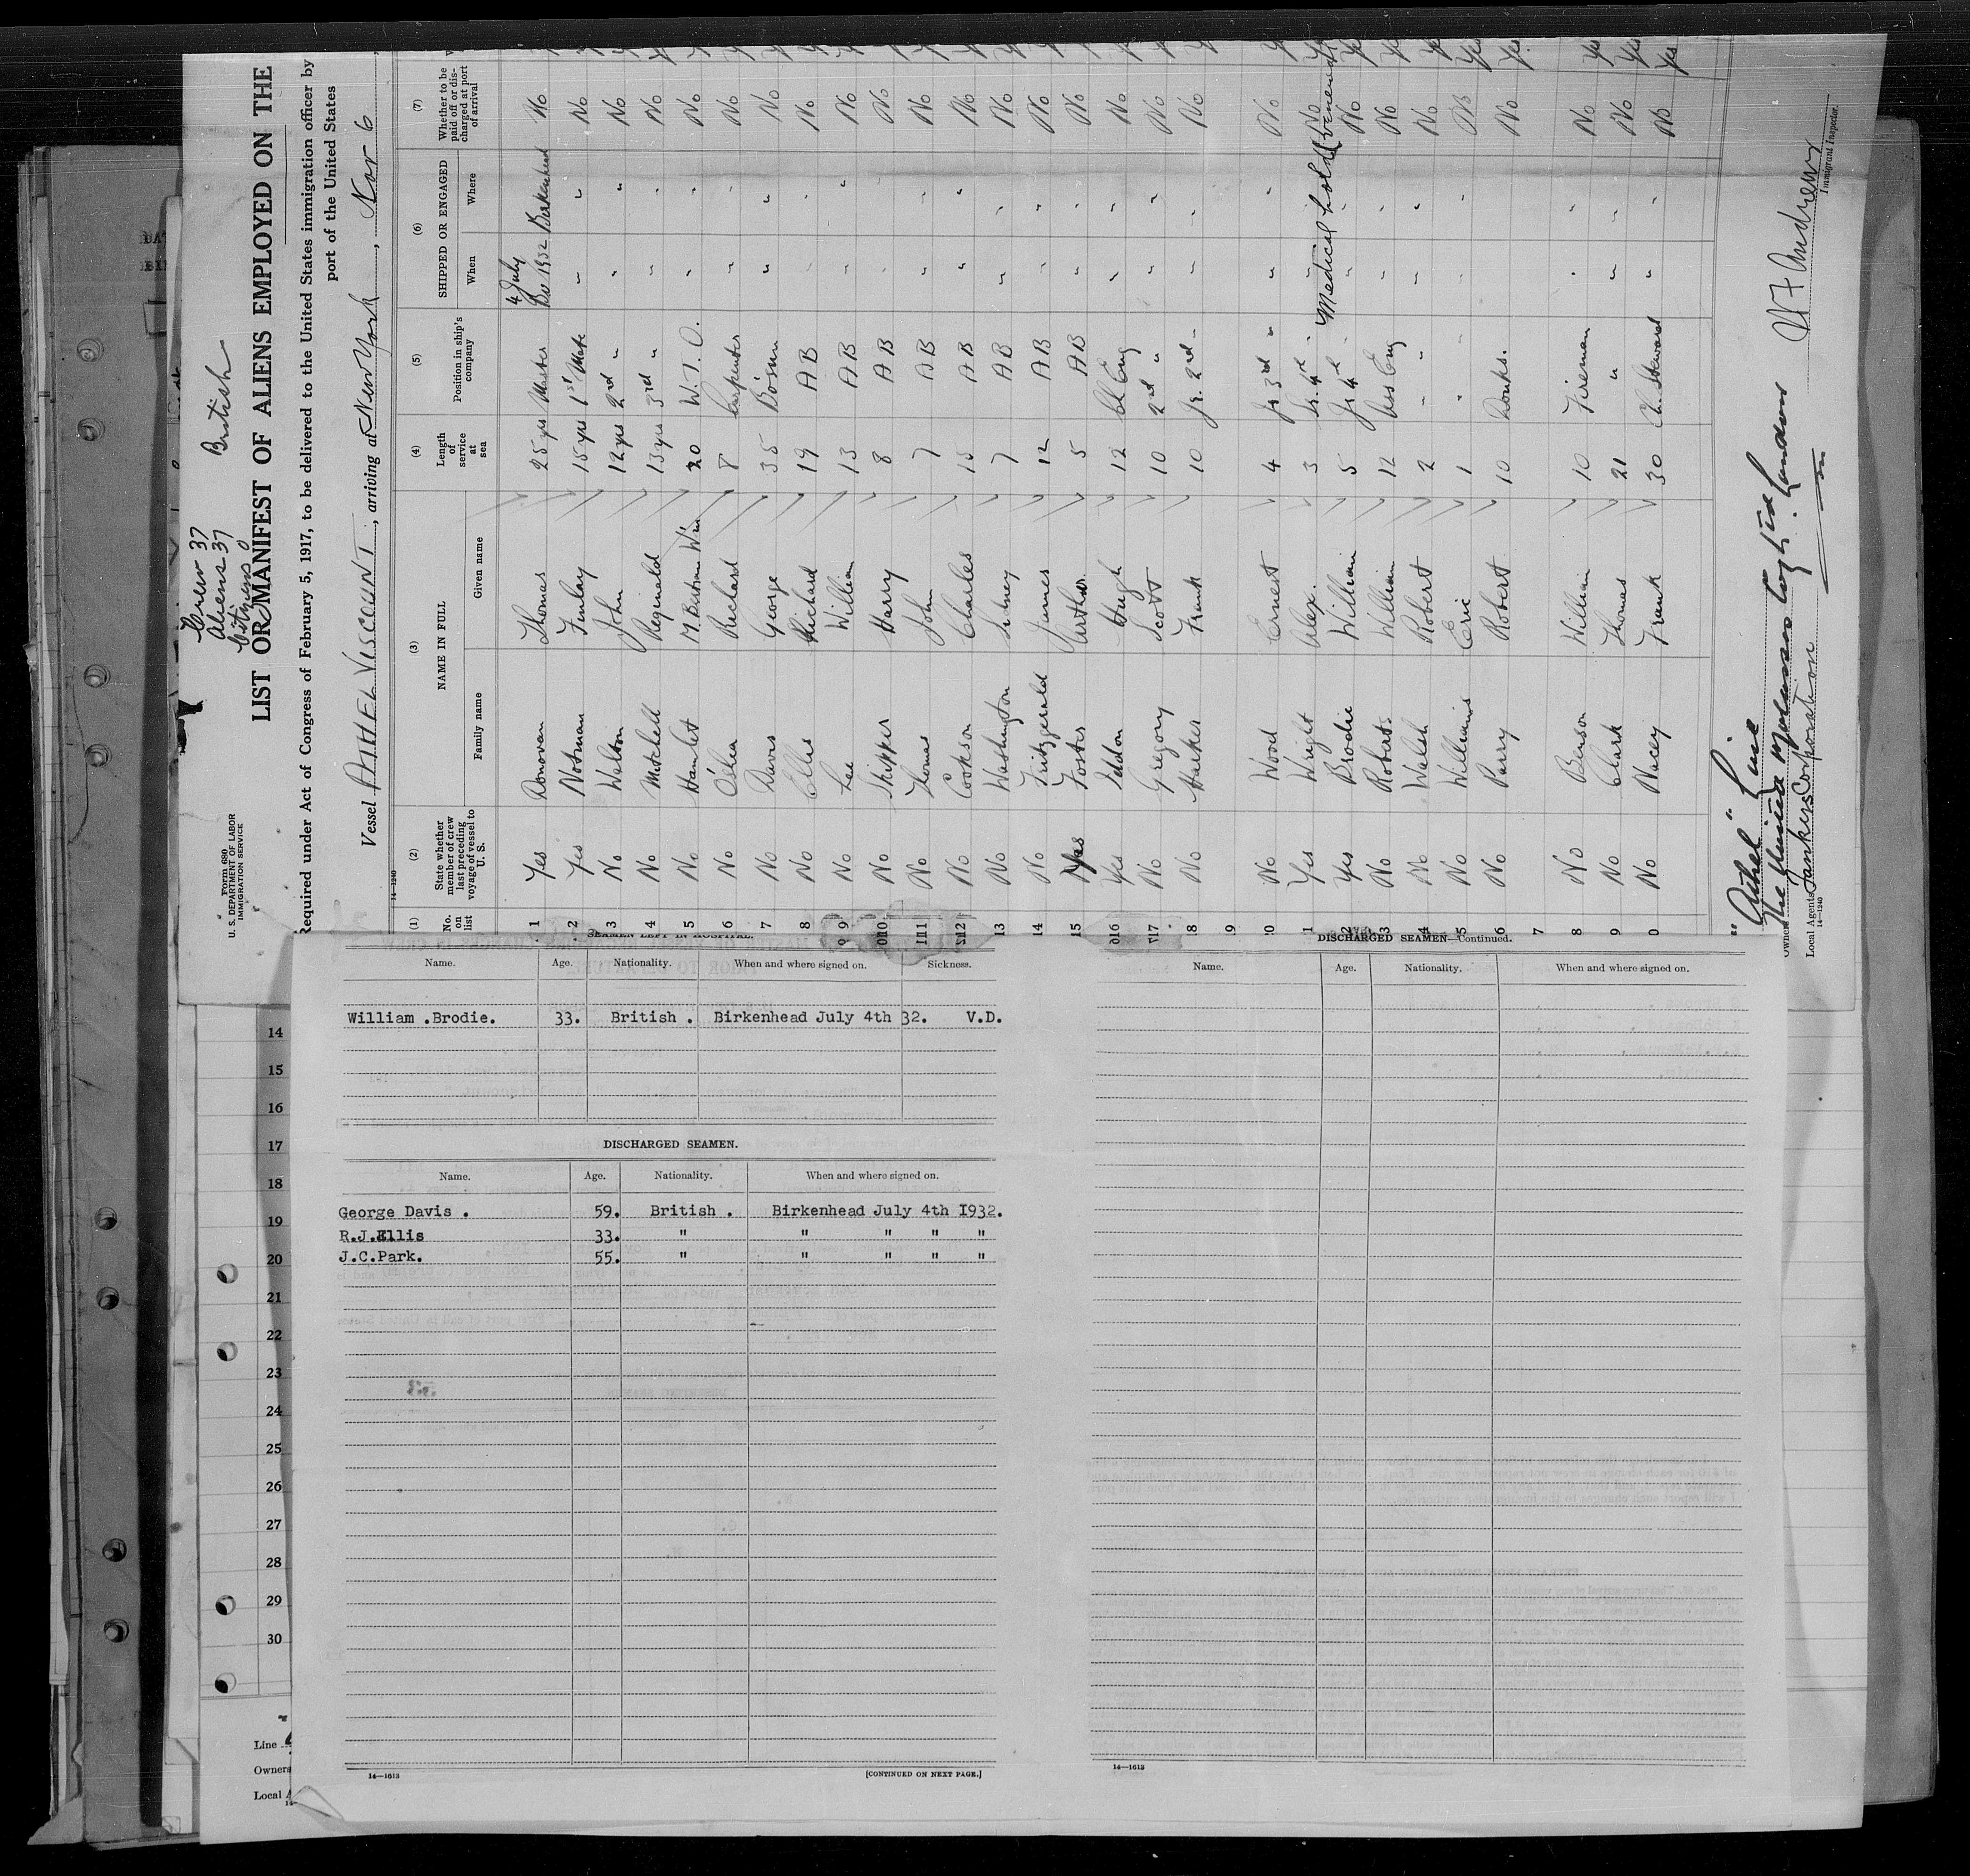 Crew 37
Aliens 37
Citizens 0
British
Form 680
U. S. DEPARTMENT OF LABOR
IMMIGRATION SERVICE
LIST OR MANIFEST OF ALIENS EMPLOYED ON THE
Required under Act of Congress of February 5, 1917, to be delivered to the United States immigration officer by
port of the United States
Vessel ATHELVISCOUNT, arriving at New York, Nov 6
14—1240
(1) (2) (3) (4) (5) (6) (7)
No. on list State whether member of crew last preceding voyage of vessel to U. S. NAME IN FULL Length of service at sea Position in ship's company SHIPPED OR ENGAGED Whether to be paid off or discharged at port of arrival
Family name Given name When Where
1 Yes Donovan Thomas 25 yrs Master 4 July 1932 Birkenhead No
2 Yes Notman Finlay 15 yrs 1st Mate " " No
3 No Walton John 12 yrs 2nd " " " No
4 No Mitchell Reginald 13 yrs 3rd " " " No
5 No Hamlet Wm 20 W.T.O. " " No
6 No O'Shea Richard 8 Carpenter " " No
7 No Davis George 35 Bosun " " No
8 No Ellis Richard 19 AB " " No
9 No Lee William 13 AB " " No
10 No Skipper Harry 8 AB " " No
11 No Thomas John 7 AB " " No
12 No Cookson Charles 15 AB " " No
13 No Washington Sidney 7 AB " " No
14 No Fitzgerald James 12 AB " " No
15 Yes Foster Arthur 5 AB " " No
16 Yes Iddon Hugh 12 Ch Eng " " No
17 No Gregory Scott 10 2nd " " " No
18 No Harker Frank 10 Jr. 2nd " " " No
9
0 No Wood Ernest 4 Jr 3rd " " " No
1 Yes Wright Alex. 3 Sr. 4th " " " No
2 Yes Brodie William 5 Jr 4th " Medical hold (venereal) No
3 No Roberts William 12 Ass Eng " " No
4 No Walsh Robert 2 " " " No
5 No Williams Eric 1 " " " No
6 No Parry Robert 10 Donks. No
7
8 No Benson William 10 Fireman " " No
9 No Clark Thomas 21 " " " No
0 No Nacey Frank 30 Ch. Steward " " No
"Athel" Line
Owners The United Molasses Coy Ltd. London
Local Agents Tankers Corporation
14—1240
Immigrant Inspector.
SEAMEN LEFT IN HOSPITAL.
Name. Age. Nationality. When and where signed on. Sickness.
William .Brodie. 33. British . Birkenhead July 4th 32. V.D.
DISCHARGED SEAMEN.
Name. Age. Nationality. When and where signed on.
George Davis . 59. British . Birkenhead July 4th I932.
R.J.Ellis 33. " " " " "
J.C.Park. 55. " " " " "
14—1613
[CONTINUED ON NEXT PAGE.]
DISCHARGED SEAMEN—Continued.
Name. Age. Nationality. When and where signed on.
14—1613
14
15
16
17
18
19
20
21
22
23
24
25
26
27
28
29
30
Line
Owners
Local